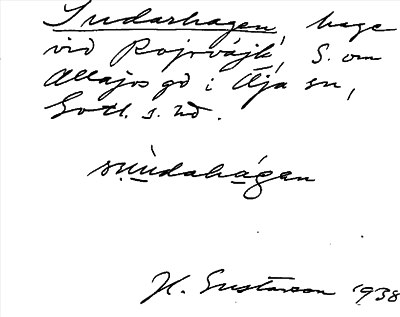 Sudarhagen, hage
vid Rojrvájk, S. om
Allajos gd i Alja sn,
Gotl. s. hd.
sùùdahágan
H. Gustavson 1938